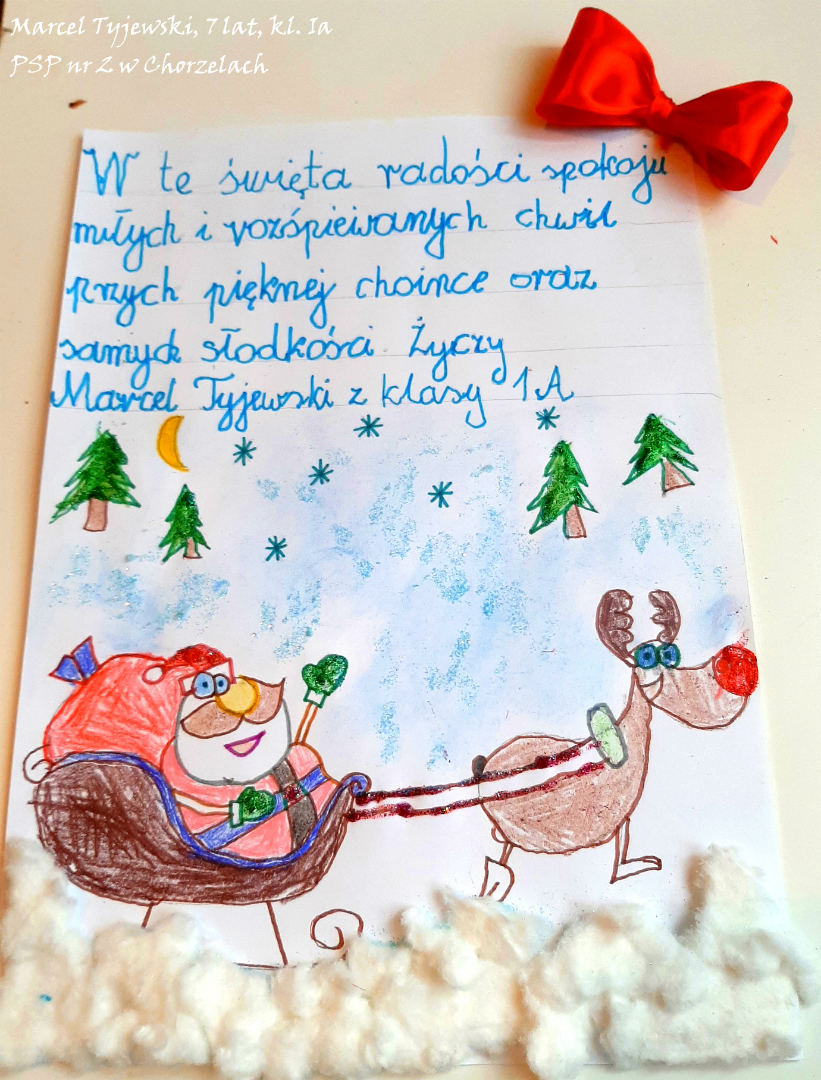 Marcel Tyjewski, 7 lat, kl. Ia
PSP nr 2 w Chorzelach
W te święta radości spokoju
miłych i vozśpiewanych chwil
przych pięknej choince oraz
samych słodkości Życzy
Marcel Tyjewski z klasy 1A